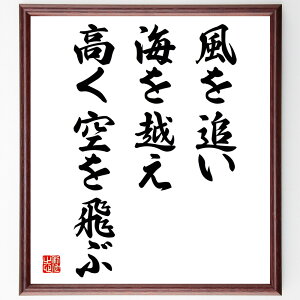 風を追い
海を越え
高く空を飛ぶ